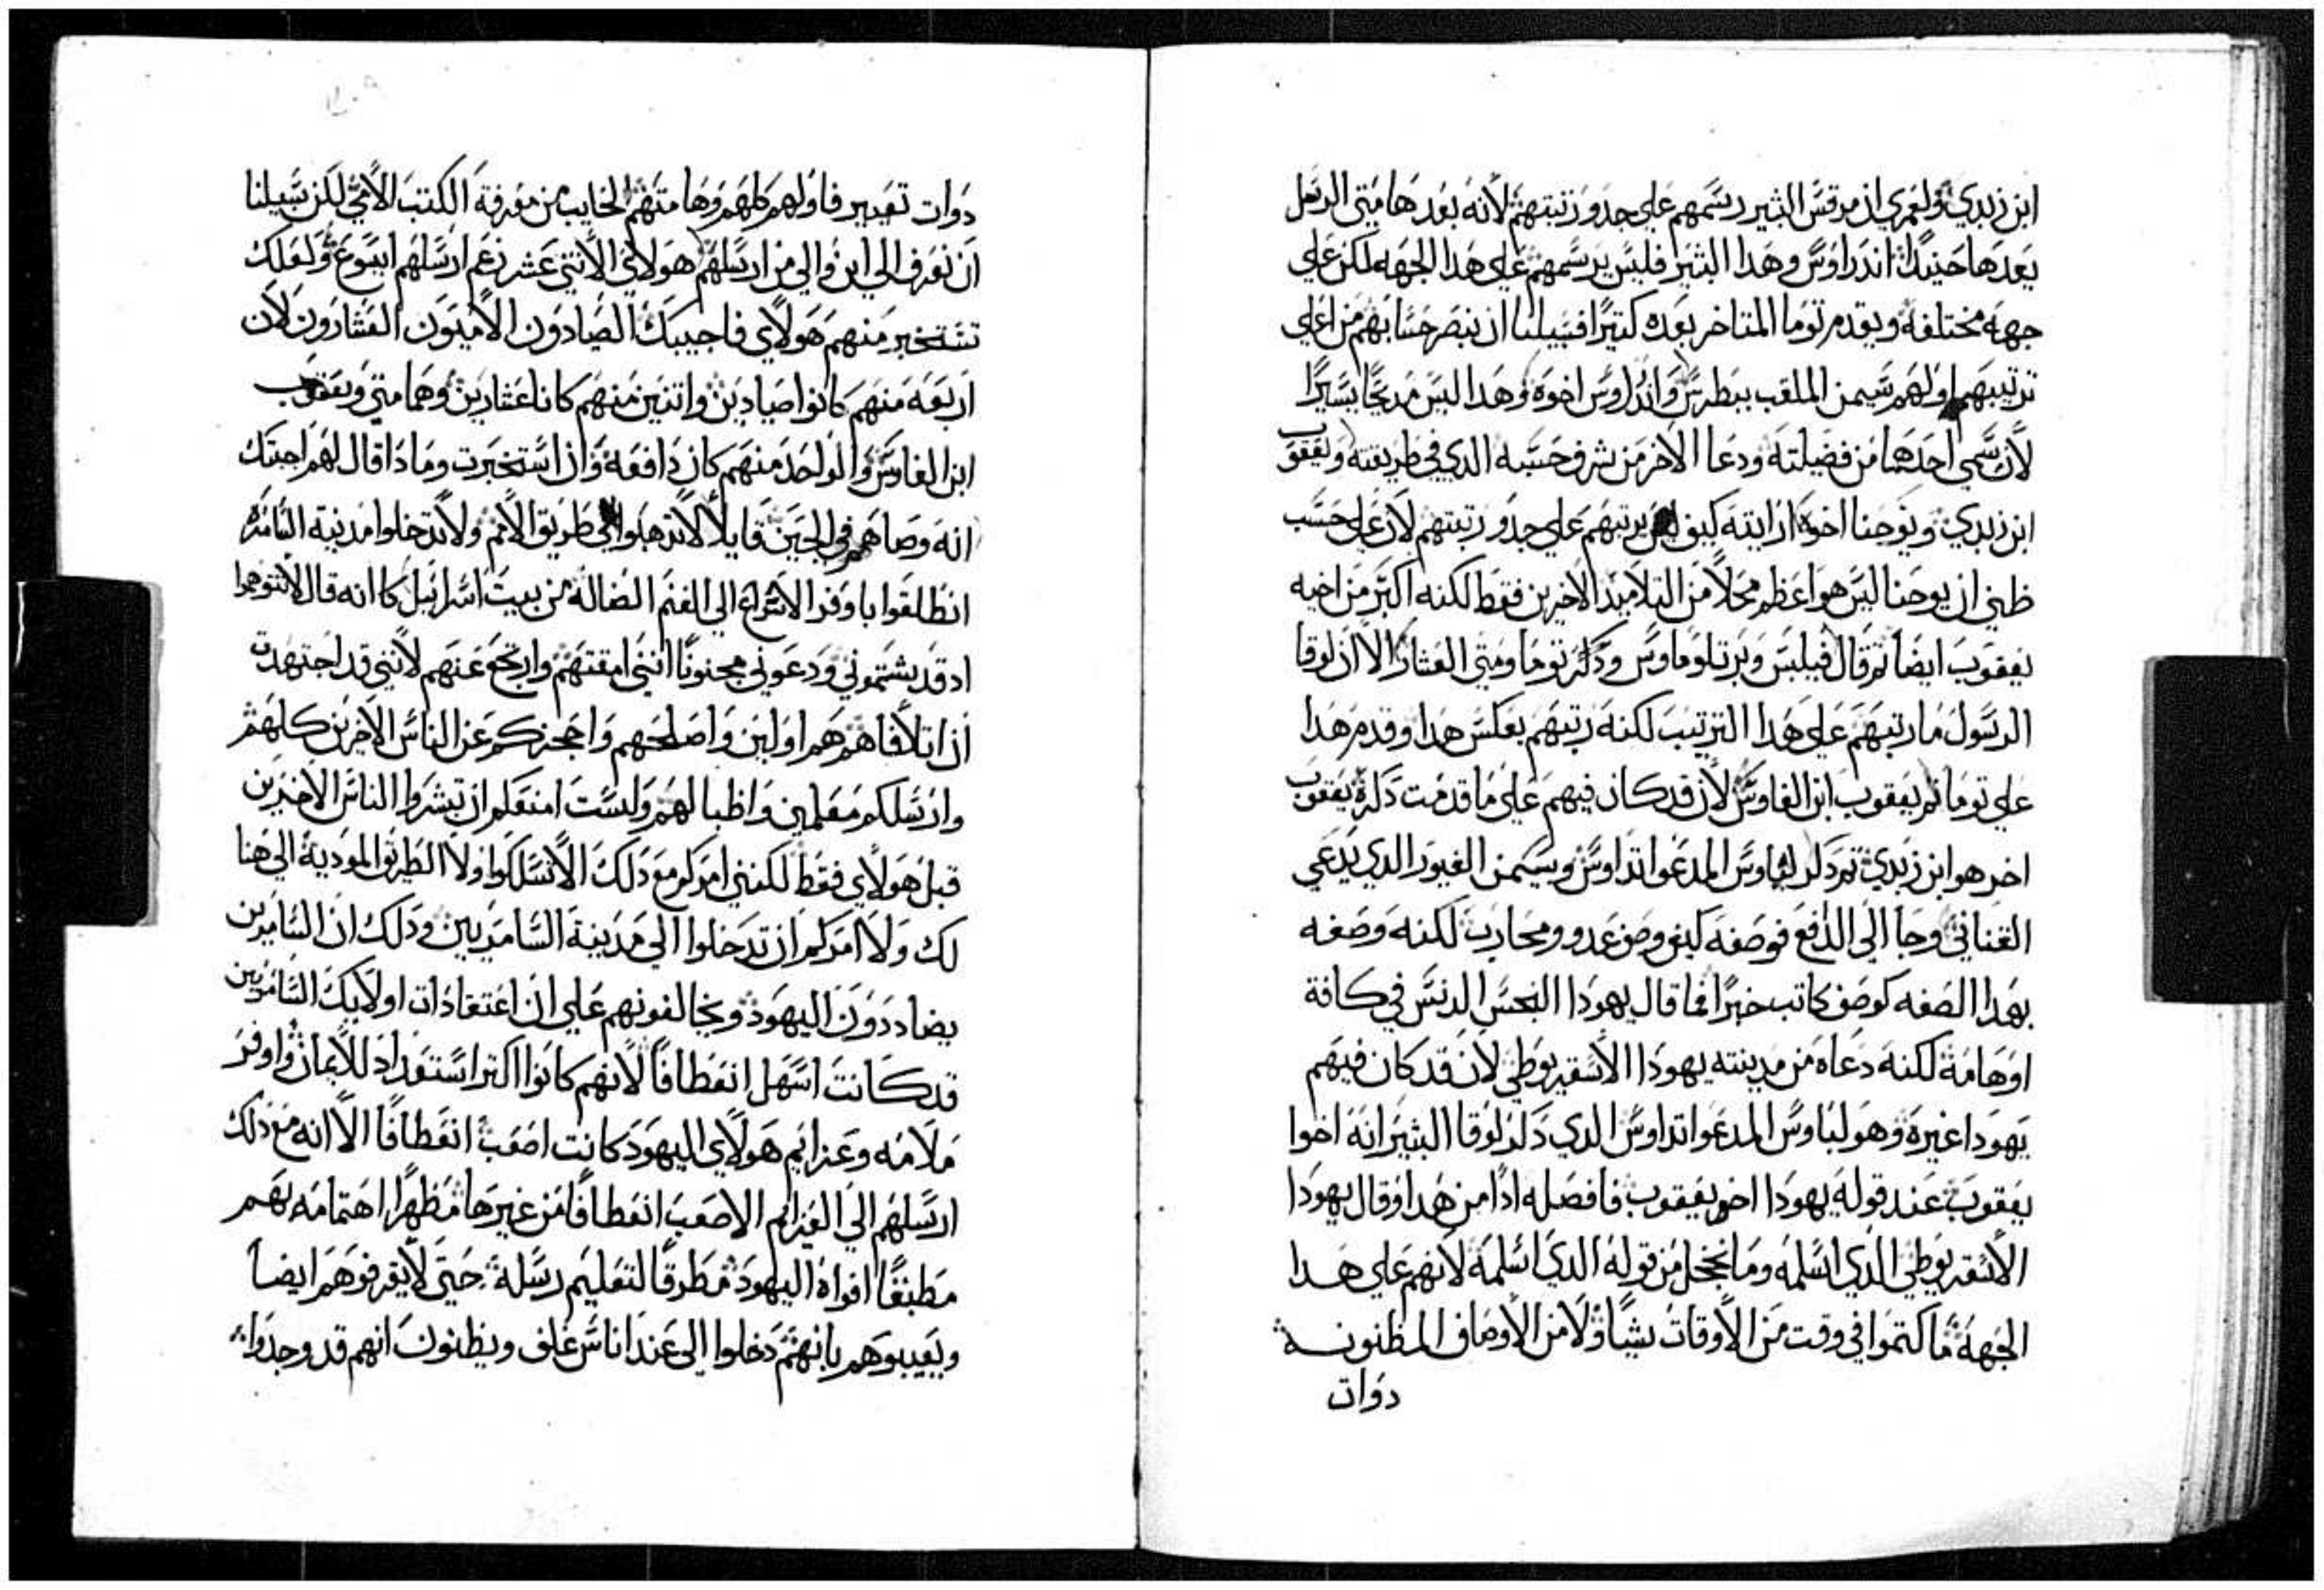 ابن زبدي ولعمري ان مرقس البشير رسمهم علي حدو رتبتهم لأنه بعد هامتي الرسل
بعدها حينيدا اندراوس وهدا البشير فليس يرسمهم علي هدا الجهه لكن علي
جهه مختلفه ويقدم توما المتاخر بعده كتيرا فسبيلنا ان نبصر حسابهم من اعلي
ترتيبهم اولهم سيمن الملقب ببطرس واندراوس اخوه وهدا ليس مديحا يسيرا
لأن سمي احدهما من فضيلته ودعا الاخر من شرف حسبه الدي في طريقته ويعقوب
ابن زبدي ويوحنا اخوه ارايته كيف ليس يرتبهم علي حدو رتبتهم لان علي حسب
ظني ان يوحنا ليس هو اعظم محلا من التلاميد الاخرين فقط لكنه اكبر من اخيه
يعقوب ايضا تم قال فيلبس وبرتلوماوس ودكر توما ومتي العشار الا ان لوقا
الرسول ما رتبهم علي هدا الترتيب لكنه رتبهم بعكس هدا وقدم هدا
علي توما تم يعقوب ابن الفاوس لأن قد كان فيهم علي ما قدمت دكره يعقوب
اخر هو ابن زبدي تم دكر لباوس المدعوا تداوس وسيمن الغيور الدي يدعي
القناني وجا الي الدافع فوصفه كيف وصف عدو ومحارب لكنه وصفه
بهدا الصفه كوصف كاتب خبرا فما قال يهودا النجس الدنس في كافة
اوهامه لكنه دعاه من مدينته يهودا الأسقريوطي لأن قد كان فيهم
يهودا غيره وهو لباوس المدعوا تداوس الدي دكر لوقا البشير انه اخوا
يعقوب عند قوله يهودا اخو يعقوب فافصله ادا من هدا وقال يهودا
الأسقريوطي الدي اسلمه وما خجل من قوله الدي اسلمه لأنهم علي هدا
الجهه ما كتموا في وقت من الأوقات شيا ولا من الأوصاف المظنونه
دوات
دوات تعيير فاولهم كلهم وهامتهم الخايب من معرفة الكتب الأمي لكن سبيلنا
ان نعرف الي اين والي من ارسلهم هولاي الاتني عشر زعم ارسلهم ايسوع ولعلك
تستخبر منهم هولاي فاجيبك الصيادون الأميون العشارون لأن
اربعه منهم كانوا صيادين واتنين منهم كانا عشارين وهما متي ويعقوب
ابن الفاوس والواحد منهم كان دافعه وان استخبرت وما دا قال لهم اجبتك
انه وصاهم في الحين قايلا لا تدهبوا الي طريق الأمم ولا تدخلوا مدينة السامرة
انطلقوا باوفر الاسراع الي الغنم الضالة من بيت اسرائيل كما انه قال لا تتوهموا
اد قد يشتموني ودعوني مجنونا انني امقتهم وارتجع عنهم لأنني قد اجتهدت
ان اتلافاهم هم اولين واصلحهم واحجزكم عن الناس الاخرين كلهم
وارسلكم معلمين واطبا لهم ولست امنعكم ان تبشروا الناس الاخرين
قبل هولاي فقط لكنني امركم مع دلك الا تسلكوا ولا الطريق المودية الي هنا
لك ولا امركم ان تدخلوا الي مدينة السامريين ودلك ان السامرين
يضاددون اليهود ويخالفونهم علي ان اعتقادات اولايك السامريين
قد كانت اسهل انعطافا لأنهم كانوا اكتر استعداد للأيمان واوفر
ملامه وعزايم هولاي اليهود كانت اصعب انعطافا الا انه مع دلك
ارسلهم الي العزايم الاصعب انعطافا من غيرها مظهرا اهتمامه بهم
مطبقا افواه اليهود مطرقا لتعليم رسله حتي لا يقرفوهم ايضا
ويعيبوهم بانهم دخلوا الي عند اناس غلف ويظنون انهم قد وجدوا